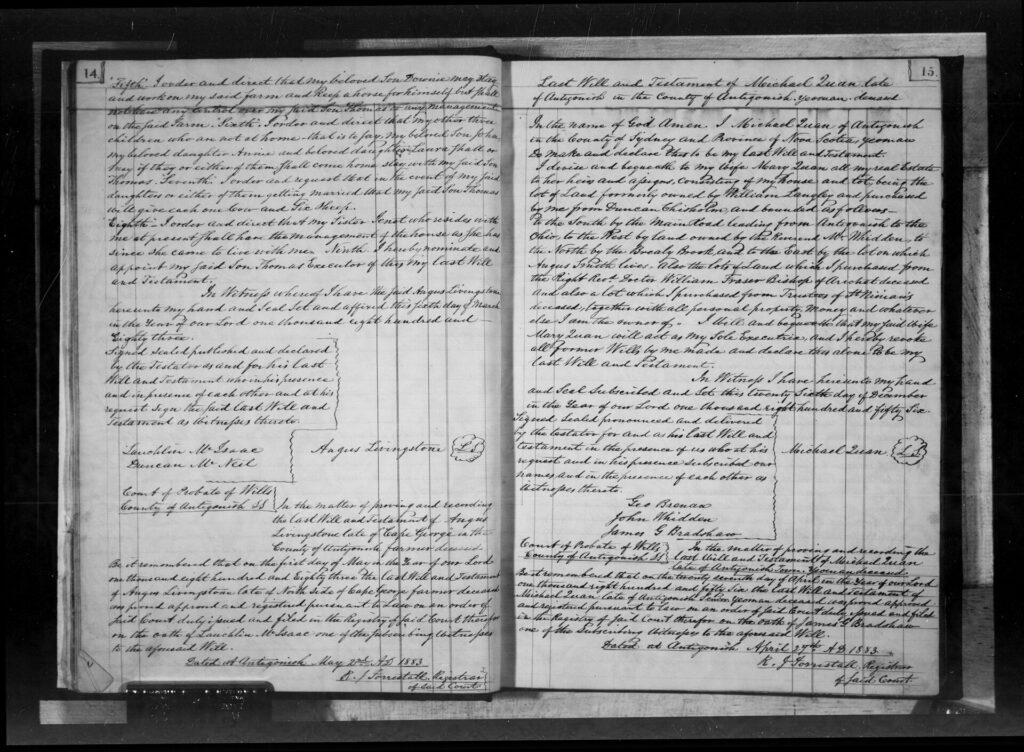 14
"Fifth" I order and direct that my beloved Son Downie may stay
and work on my said farm and Keep a horse for himself but shall
not have any control over my said Son Thomas or any management
on the said farm. Sixth. I order and direct that my other three
children who are not at home that is to say, my beloved Son John
my beloved daughter Annie and beloved daughter Laura shall or
may if they or either of them shall come home stay with my said Son
Thomas. Seventh. I order and request that in the event of my said
daughters or either of them getting married that my said Son Thomas
will give each one Cow and Six Sheep.
Eighth. I order and direct that my Sister Jenet who resides with
me at present, shall have the management of the house as she has
since she came to live with me. Ninth. I hereby nominate and
appoint my said Son Thomas Executor of this my last Will
and Testament.
In Witness whereof I have the said Angus Livingstone
hereunto my hand and Seal Set and affixed this sixth day of March
in the Year of our Lord one thousand eight hundred and
Eighty three.
Signed sealed published and declared
by the Testator as and for his last
Will and Testament who in his presence
and in presence of each other and at his
request Sign the said last Will and
Testament as witnesses thereto.
Lauchlin McIsaac
Duncan McNeil
Angus Livingstone
LS
Court of Probate of Wills
County of Antigonish SS
In the matter of proving and recording
the last Will and Testament of Angus
Livingstone late of Cape George in the
County of Antigonish farmer deceased.
Be it remembered that on the first day of May in the Year of our Lord
one thousand eight hundred and Eighty three the last Will and Testament
of Angus Livingstone late of North Side of Cape George farmer deceased
was proved approved and registered pursuant to Law on an order of
said Court duly issued and filed in the Registry of said Court therefor
on the oath of Lauchlin McIsaac one of the subscribing witnesses
to the aforesaid Will.
Dated at Antigonish May 2nd AD 1883
R. J Forrestall Registrar
of said Court
15.
Last Will and Testament of Michael Quan late
of Antigonish in the County of Antigonish yeoman deceased
In the name of God Amen. I Michael Quan of Antigonish
in the County of Sydney and Province of Nova Scotia yeoman
Do make and declare this to be my last Will and Testament.
I devise and bequeath to my Wife Mary Quan all my real Estate
to her heirs and assigns, consisting of my house and lot, being the
lot of Land formerly owned by William Langley and purchased
by me from Duncan Chisholm, and bounded as follows
To the South by the Main Road leading from Antigonish to the
Ohio, to the West by land owned by the Reverend Mr Whidden, to
the North by the Brook, and to the East by the lot on which
Angus Smith lives. Also the lots of Land which I purchased from
the Right Revd Doctor William Fraser Bishop of Arichat deceased
And also a lot which I purchased from Trustees of St Ninian's
diocese, together with all personal property, Money and whatever
else I am the owner of. I Will and bequeath that my said Wife
Mary Quan will act as my Sole Executrix, and I hereby revoke
all former Wills by me made and declare this alone to be my
last Will and Testament.
In Witness I have hereunto my hand
and Seal Subscribed and Set this twenty sixth day of December
in the Year of our Lord one thousand eight hundred and fifty Six.
Signed Sealed pronounced and delivered
by the testator for and as his last Will and
testament in the presence of us who at his
request and in his presence subscribed our
names and in the presence of each other as
witnesses thereto.
Michael Quan
LS
Geo Brenan
John Whidden
James G Bradshaw
Court of Probate of Wills
County of Antigonish SS
In the matter of proving and recording the
last Will and Testament of Michael Quan
late of Antigonish Town Yeoman deceased.
Be it remembered that on the twenty seventh day of April in the Year of our Lord
one thousand eight hundred and fifty Six the last Will and Testament of
Michael Quan late of Antigonish yeoman deceased was proved approved
and registered pursuant to law on an order of said Court duly issued and filed
in the Registry of said Court therefor on the oath of James G Bradshaw
one of the Subscribing Witnesses to the aforesaid Will.
Dated at Antigonish April 27th A.D. 1883.
R. J Forrestall, Registrar
of said Court